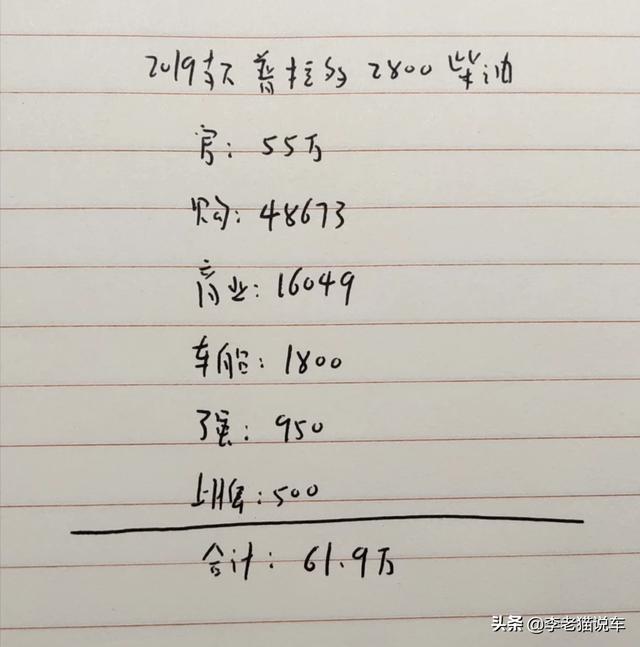 2019款 普拉多 2800 柴油
官: 55万
购: 48673
商业: 16049
车船: 1800
强: 950
上牌: 500
合计: 61.9万
头条 @李老猫说车